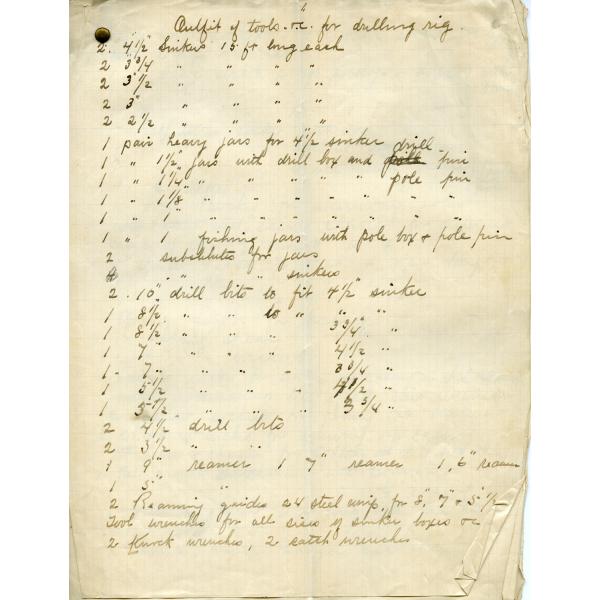 Outfit of tools &c. for drilling rig.
2. 4½" Sinkers 15 ft long each
2 3¾" " " " "
2 3½" " " " "
2 3" " " " "
2 2½ " " " "
1 pair heavy jars for 4½ sinker
drill
1 " 1½" jars with drill box and pole pin
1 " 1¼" " " " " " pole pin
1 " 1⅛ " " " " " " "
1 " 1" " " " " " " "
1 " 1 fishing jars with pole box & pole pin
2 substitutes for jars
4 " " sinkers
2. 10" drill bits to fit 4½" sinker
1 8½ " " to " " "
1 8½ " " " 3¾" "
1 7" " " " 4½ "
1 - 7" " " " 3¾ "
1 5½ " " " 4½ "
1 5½ " " " 3¾ "
2 4½ drill bits
2 3½ " "
1 9" reamer 1 7" reamer 1, 6" reamer
1 5" "
2 Reaming guides 24 steel for 8", 7" & 5½
Tool wrenches for all sizes of sinker boxes &c
2 Knock wrenches, 2 catch wrenches